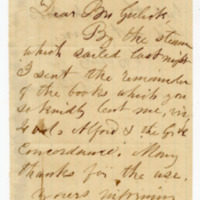 Dear Bro Gulick,
By the steamer
which sailed last night
I sent the remainder
of the books which you
so kindly lent me, viz,
4 vols Alford & the Greek
Concordance. Many
thanks for the use.
Yours